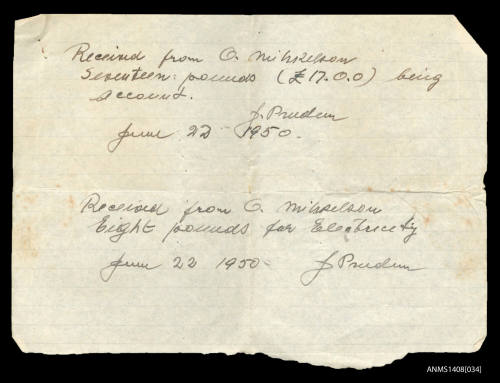 Received from O. Mikkelson
Seventeen: pounds (£17.0.0) being
account.
J. Pruden
June 22 1950.
Received from O. Mikkelson
Eight pounds for Electricity
June 22 1950 J Pruden
ANMS1408[034]